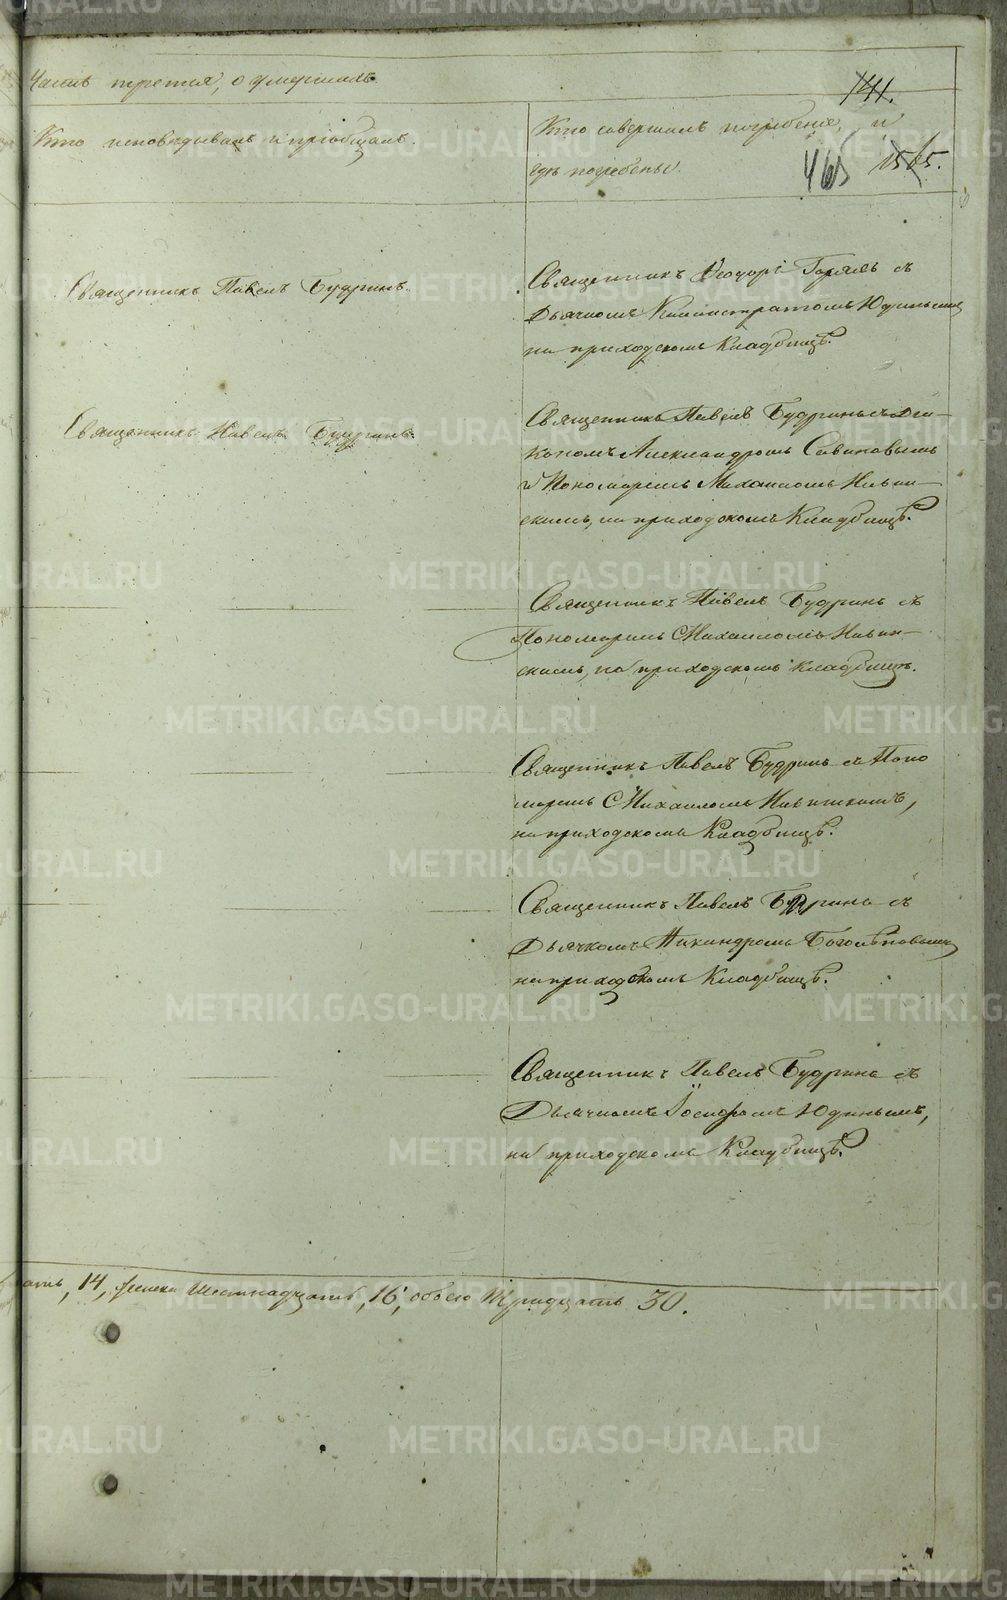 Часть третья, о умершихъ
141.
Кто исповѣдывалъ и пріобщалъ.
Кто совершалъ погребеніе, и
гдѣ погребены.
465 1565.
Священникъ Павелъ Будринъ.
Священникъ Ѳеодоръ с
Дьячкомъ Каллистратомъ Юдинымъ
на приходскомъ Кладбищѣ.
Священникъ Павелъ Будринъ.
Священникъ Павелъ Будринъ съ Діа-
кономъ Александромъ Савиновымъ
и Пономаремъ Михаиломъ Ивин-
скимъ, на приходскомъ Кладбищѣ.
Священникъ Павелъ Будринъ съ
Пономаремъ Михаиломъ Ивин-
скимъ, на приходскомъ кладбищѣ.
Священникъ Павелъ Будринъ съ Поно
маремъ Михаиломъ Ивинскимъ,
на приходскомъ Кладбищѣ.
Священникъ Павелъ Будринъ съ
Дьячкомъ Никандромъ Боголѣповымъ
на приходскомъ Кладбищѣ.
Священникъ Павелъ Будринъ съ
Дьячкомъ Іосифомъ Юдинымъ,
на приходскомъ Кладбищѣ.
14, женска Шестнадцать, 16, обоего Тридцать 30.
METRIKI.GASO-URAL.RU